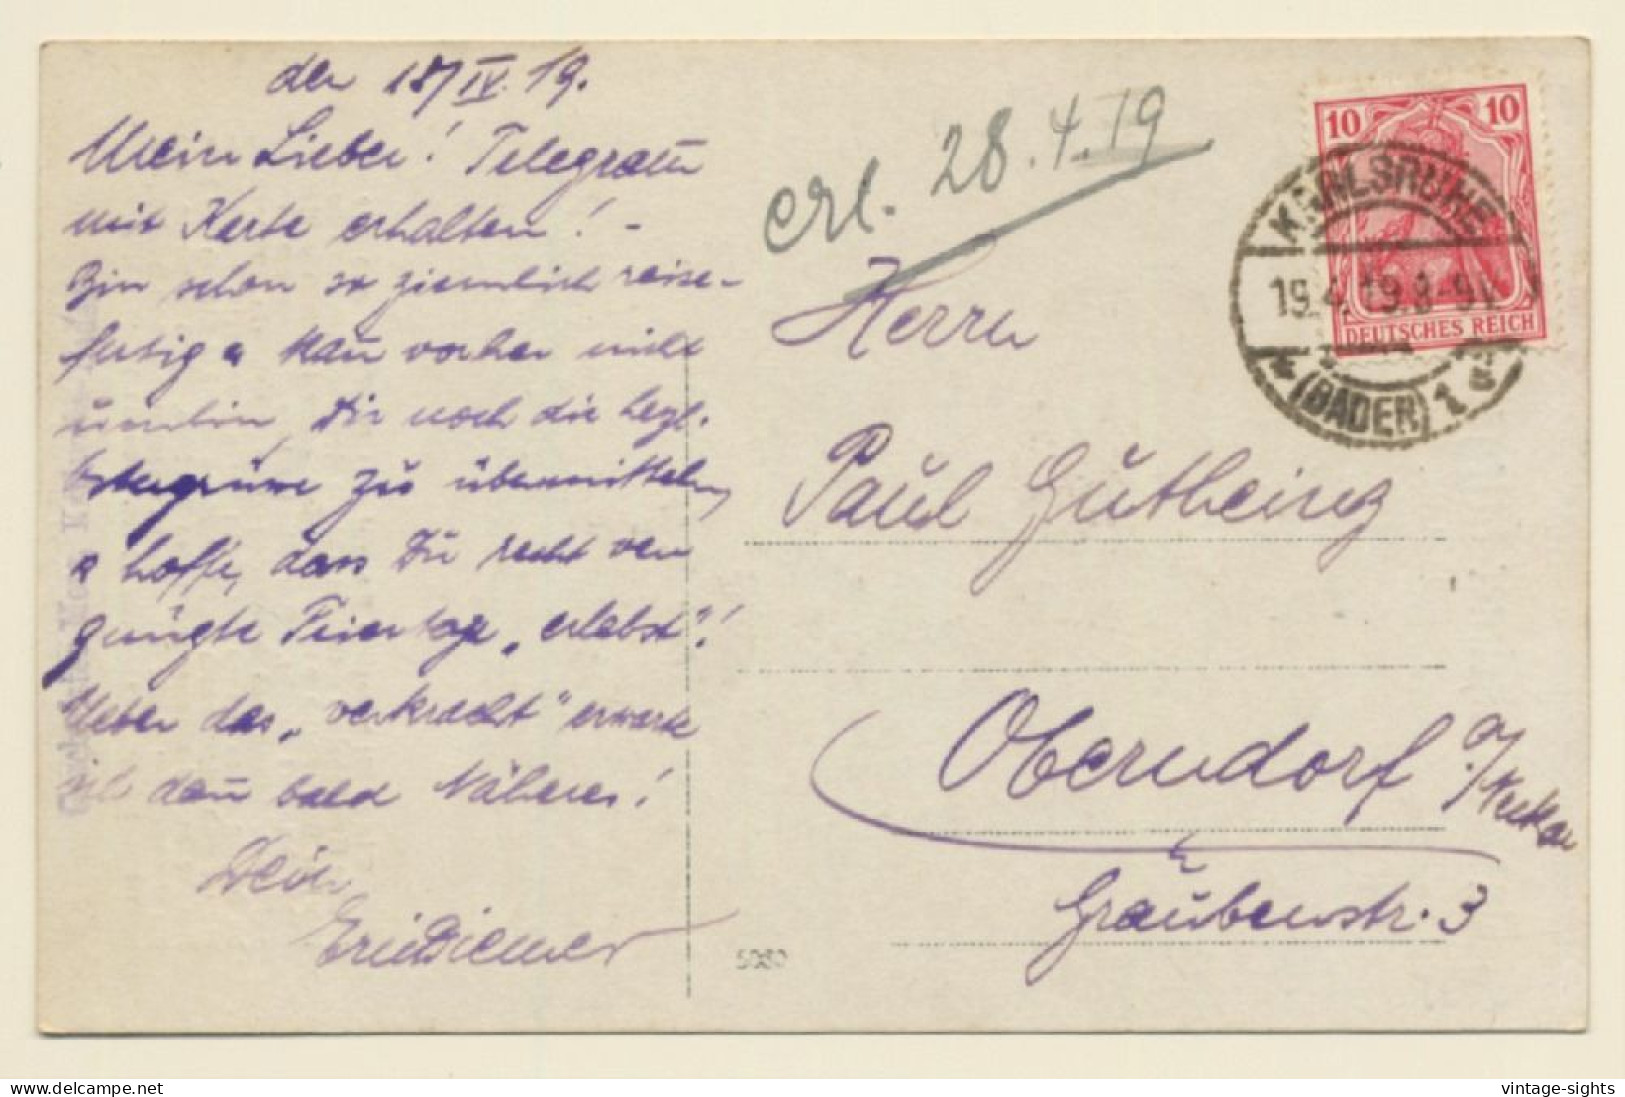 den 18/IV. 19.
Mein Lieber! Telegram̅
mit Karte erhalten! -
Bin schon so ziemlich reise-
fertig u kan̅ vorher nicht
umhin, Dir noch die hrzl.
Ostergrüsse zu übermitteln,
u hoffe, dass Du recht ver
gnügte Feiertage „erlebst"!
Ueber das „verkracht" erwarte
ich dan̅ bald Näheres!
Dein
erl. 28.4.19
Herrn
Paul Gutheinz
Oberndorf a/Neckar
Graubenstr. 3
5030
10 10
DEUTSCHES REICH
KARLSRUHE
19.4.19.8-9V.
(BADEN) 1
delcampe.net
vintage-sights